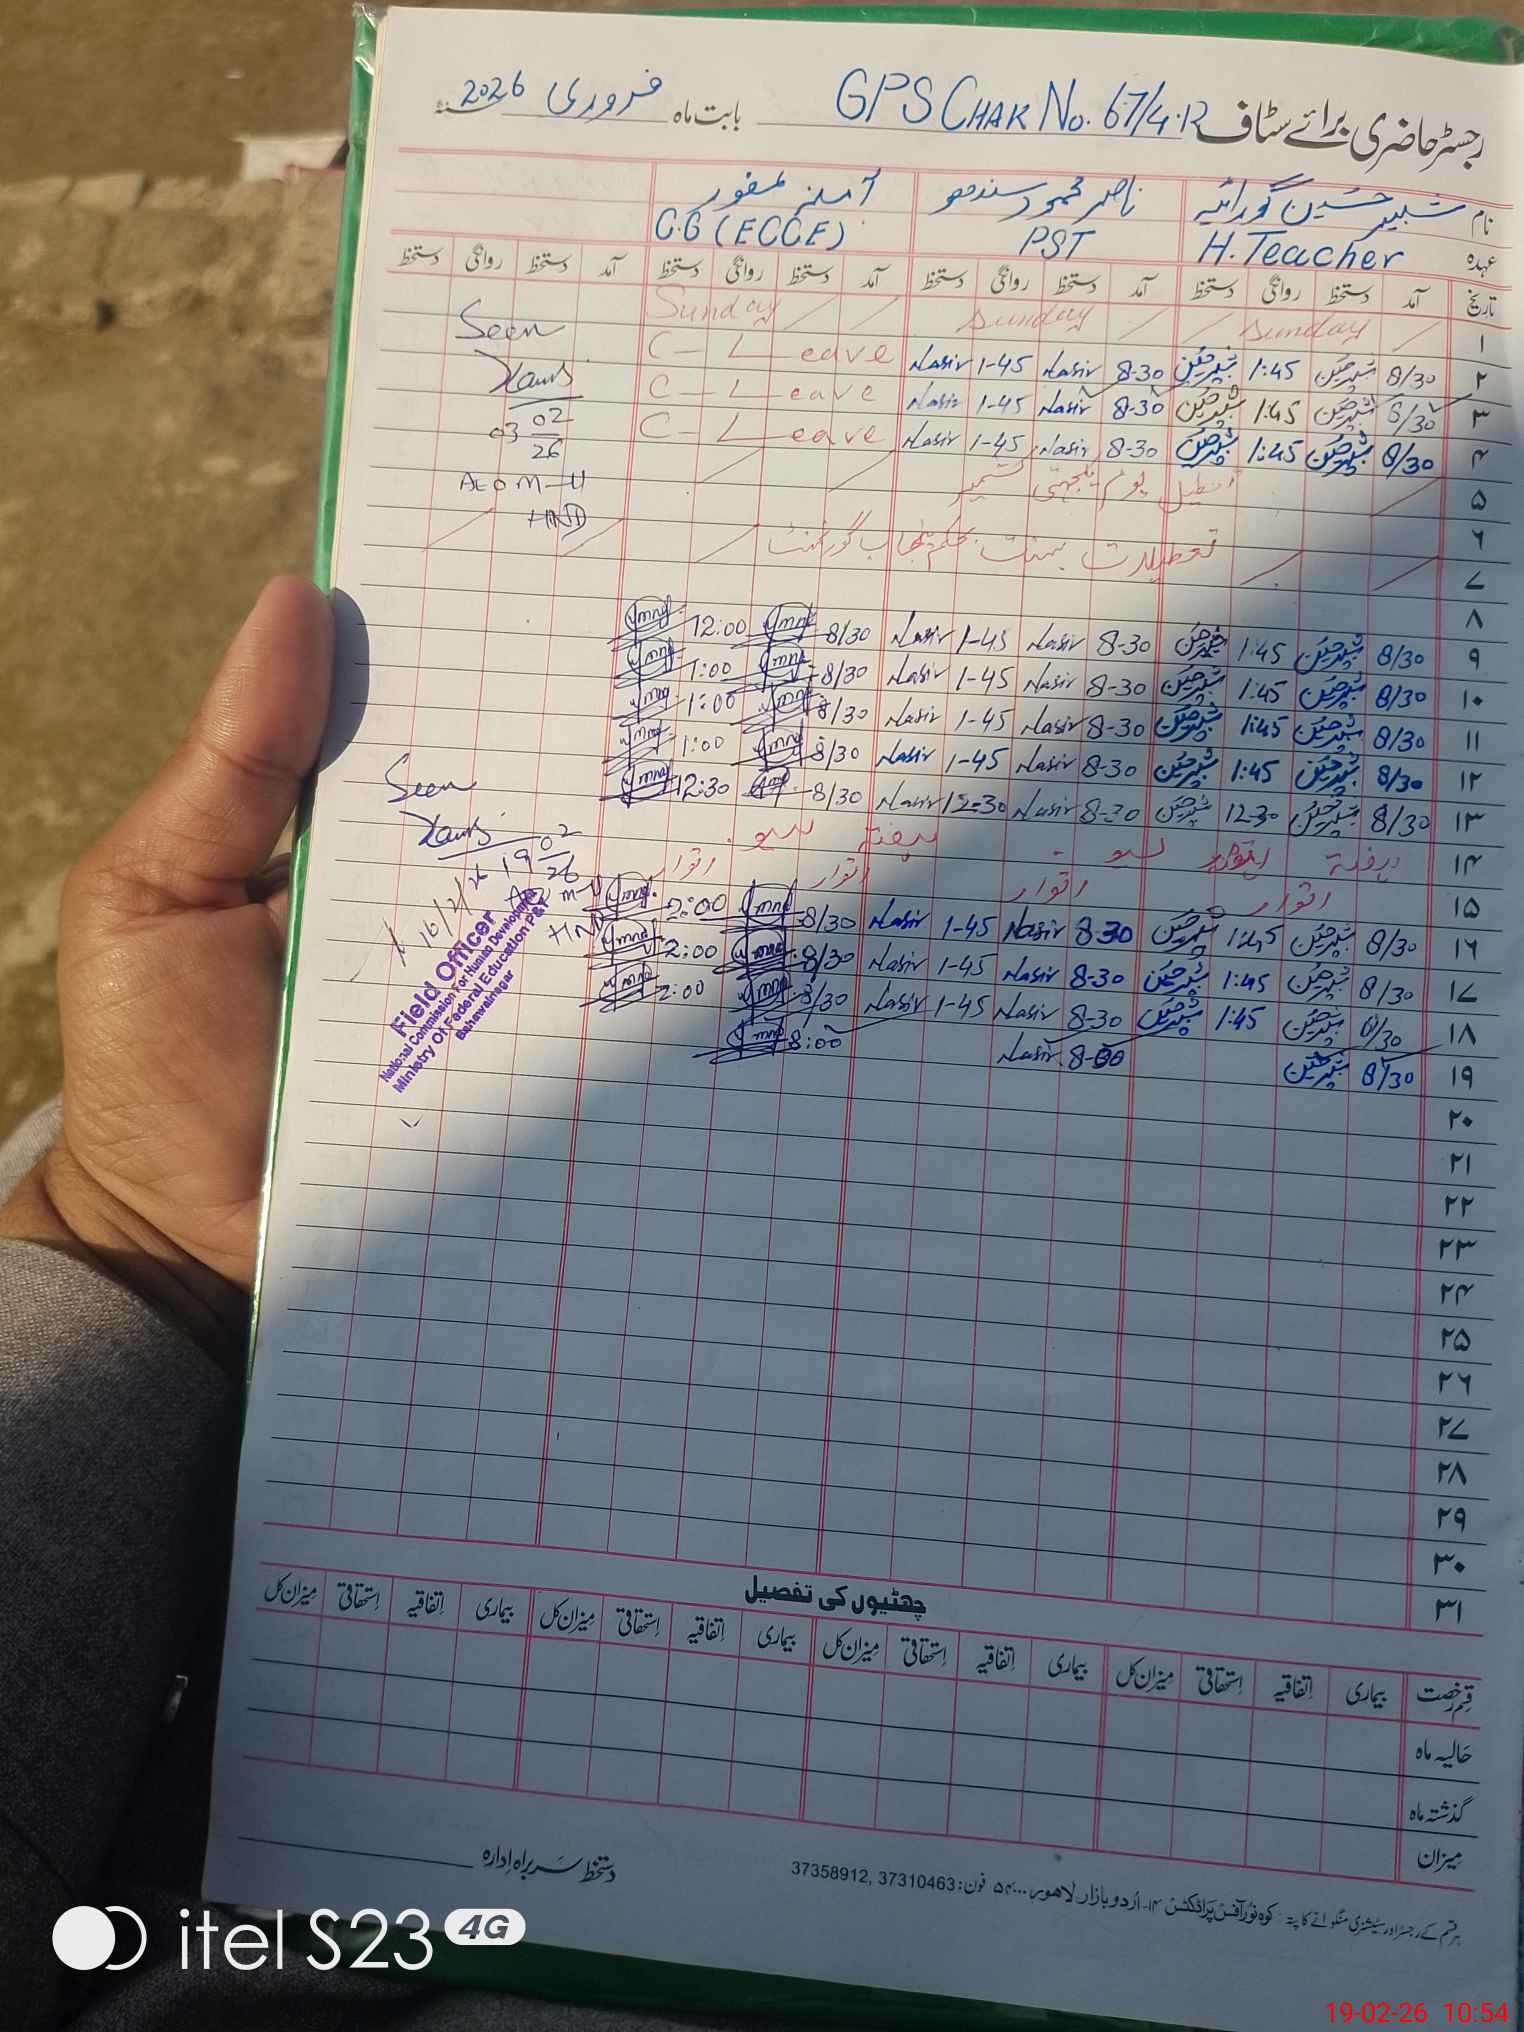 رجسٹر حاضری برائے سٹاف GPS CHAK No. 67/4.R بابت ماہ فروری 2026 سنہ
نام شبیر حسین گورائیہ ناصر محمود سندھو آمنہ غفور
عہدہ H. Teacher PST C.G (ECCE)
تاریخ آمد دستخط روانگی دستخط آمد دستخط روانگی دستخط آمد دستخط روانگی دستخط آمد دستخط روانگی دستخط
۱ Sunday Sunday Sunday
۲ 8/30 شبیر حسین 1:45 شبیر حسین 8-30 Nasir 1-45 Nasir C-Leave
۳ 8/30 شبیر حسین 1:45 شبیر حسین 8-30 Nasir 1-45 Nasir C-Leave
۴ 8/30 شبیر حسین 1:45 شبیر حسین 8-30 Nasir 1-45 Nasir C-Leave
Seen
03 02
26
AEO M-U
HND
۵ تعطیل یوم یکجہتی کشمیر
۶
تعطیلات بسنت بحکم پنجاب گورنمنٹ
۷
۸
۹ 8/30 شبیر حسین 1:45 شبیر حسین 8-30 Nasir 1-45 Nasir 8/30 12:00
۱۰ 8/30 شبیر حسین 1:45 شبیر حسین 8-30 Nasir 1-45 Nasir 8/30 1:00
۱۱ 8/30 شبیر حسین 1:45 شبیر حسین 8-30 Nasir 1-45 Nasir 8/30 1:00
۱۲ 8/30 شبیر حسین 1:45 شبیر حسین 8-30 Nasir 1-45 Nasir 8/30 1:00
۱۳ 8/30 شبیر حسین 12-30 شبیر حسین 8-30 Nasir 12-30 Nasir 8/30 12:30
۱۴ ہفتہ
۱۵ اتوار اتوار اتوار اتوار
۱۶ 8/30 شبیر حسین 1:45 شبیر حسین 8-30 Nasir 1-45 Nasir 8/30 2:00
۱۷ 8/30 شبیر حسین 1:45 شبیر حسین 8-30 Nasir 1-45 Nasir 8/30 2:00
۱۸ 8/30 شبیر حسین 1:45 شبیر حسین 8-30 Nasir 1-45 Nasir 8/30 2:00
۱۹ 8/30 شبیر حسین 8-00 Nasir 8:00
Seen
19 02
26
M-U
HND
16/2/26
Field Officer
National Commission For Human Development
Ministry Of Federal Education P&T
Bahawalnagar
۲۰
۲۱
۲۲
۲۳
۲۴
۲۵
۲۶
۲۷
۲۸
۲۹
۳۰
۳۱
چھٹیوں کی تفصیل
قسم رخصت بیماری اتفاقیہ استحقاقی میزان کل بیماری اتفاقیہ استحقاقی میزان کل بیماری اتفاقیہ استحقاقی میزان کل بیماری اتفاقیہ استحقاقی میزان کل
حالیہ ماہ
گذشتہ ماہ
میزان
دستخط سربراہ ادارہ
ہر قسم کے رجسٹر اور سٹیشنری منگوانے کا پتہ: کوہ نور آفس پراڈکٹس ۱۴- اُردو بازار لاہور ۵۴۰۰۰ فون: 37310463, 37358912
itel S23 4G
19-02-26 10:54